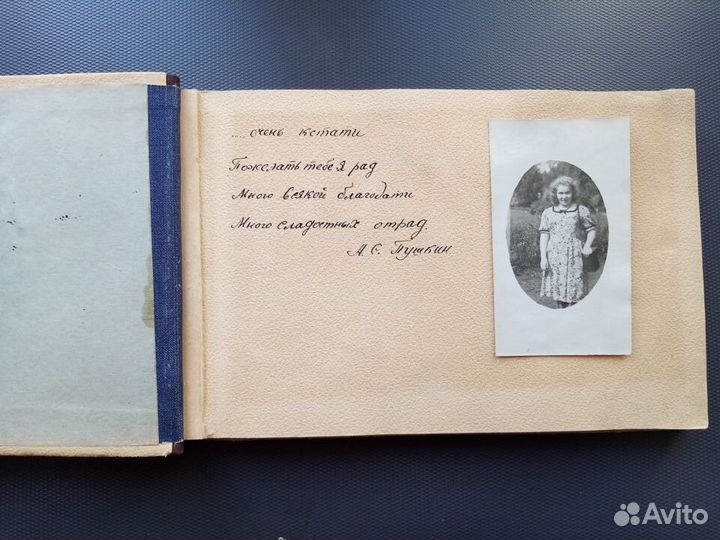 .... очень кстати
Пожелать тебе я рад
Много всякой благодати
Много сладостных отрад.
А. С. Пушкин
Avito